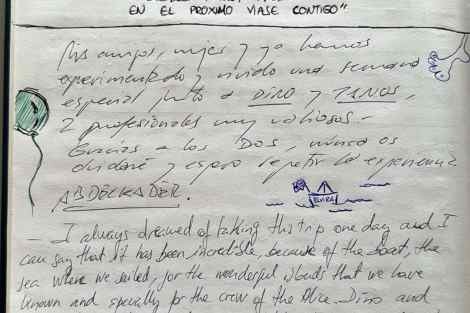 EN EL PROXIMO VIAJE CONTIGO".
Mis amigos, mujer y yo hemos
experimentado y vivido una semana
especial junto a DINO y TANOS,
2 profesionales muy valiosos -
Gracias a los DOS, nunca os
olvidaré y espero repetir la experiencia
ABDELKADER.
ELVIRA
- I always dreamed of taking this trip one day and I
can say that it has been incredible, because of the boat, the
sea where we sailed, for the wonderful islands that we have
known and specially for the crew of the Dino and